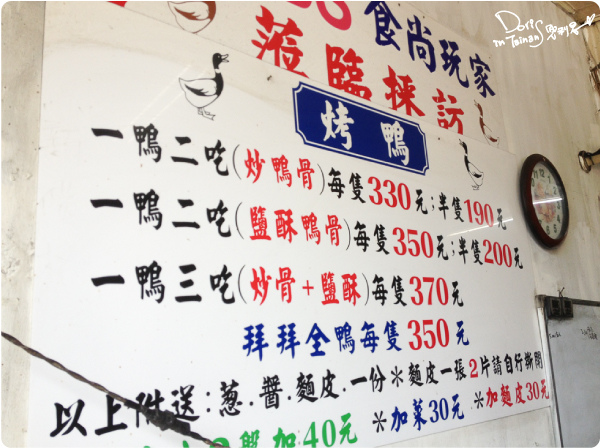 Doris
in Tainan
食尚玩家
蒞臨採訪
烤鴨
一鴨二吃(炒鴨骨)每隻330元;半隻190元
一鴨二吃(鹽酥鴨骨)每隻350元;半隻200元
一鴨三吃(炒骨+鹽酥)每隻370元
拜拜全鴨每隻350元
以上附送:蔥.醬.麵皮.一份*麵皮一張2片請自行撕開
加40元 *加菜30元 *加麵皮30元